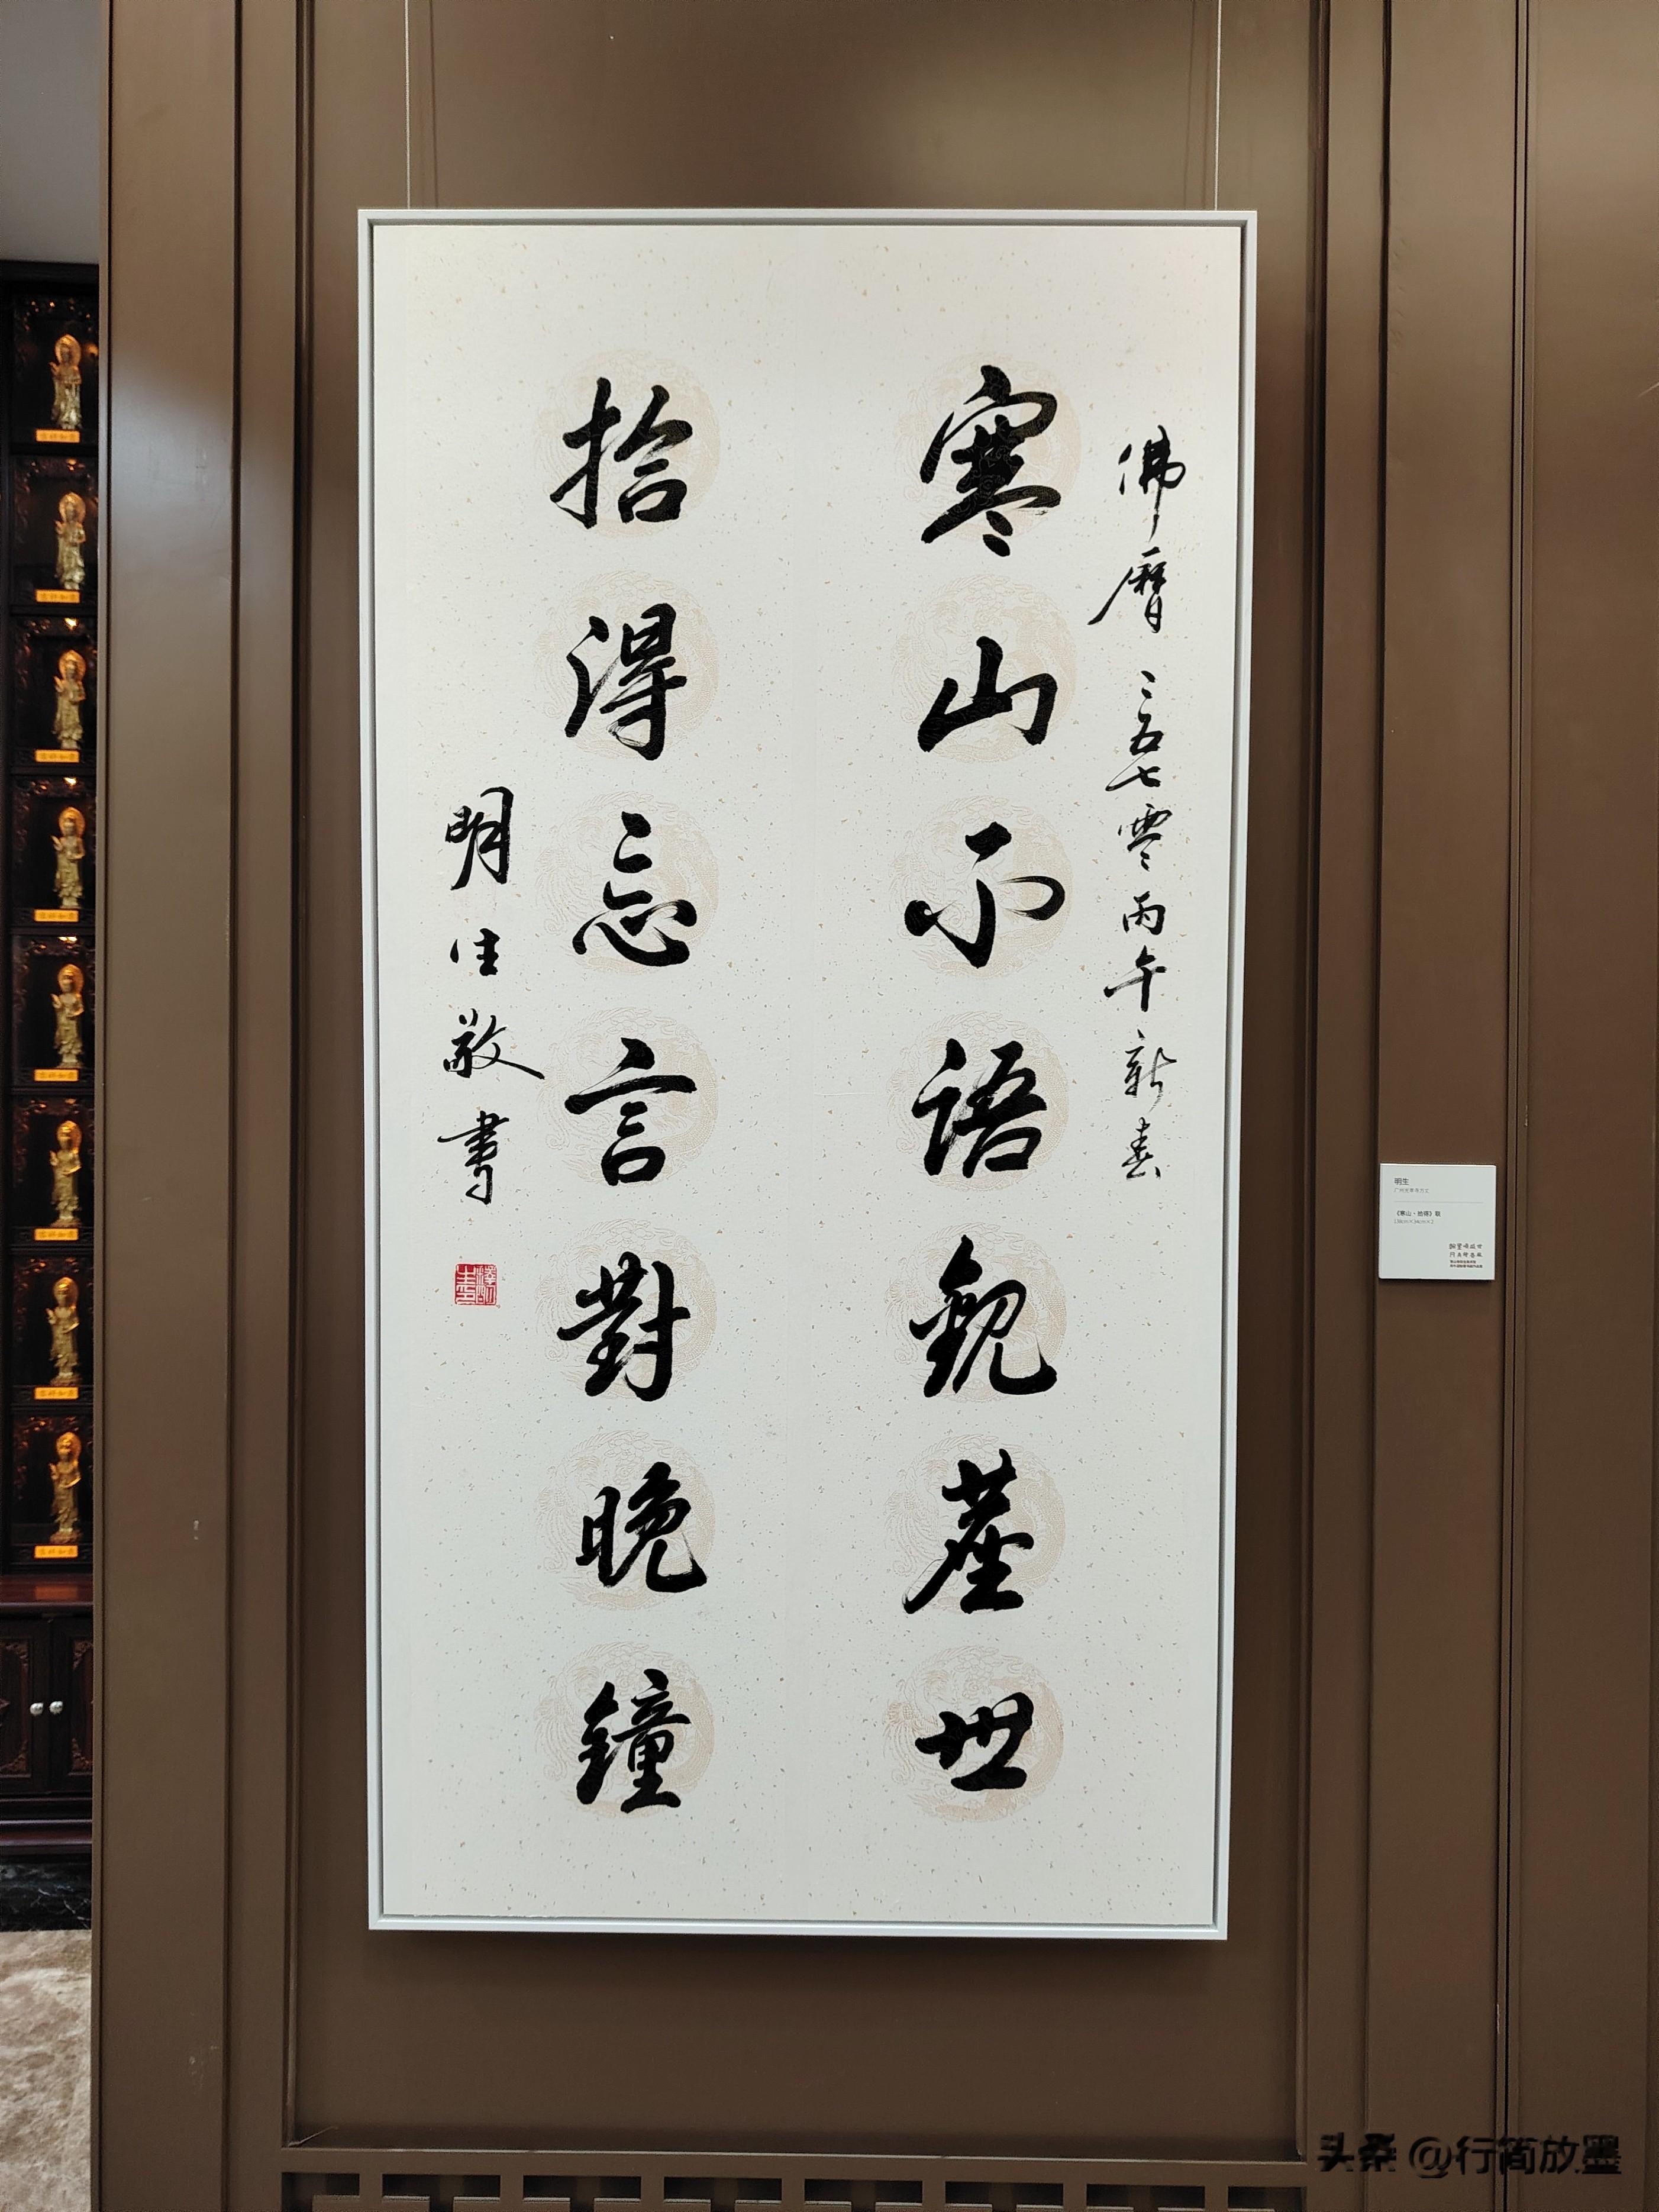 佛曆二五七零丙午新春
寒山不語觀塵世
拾得忘言對晚鐘
明生敬書
明生
广州光孝寺方丈
《寒山·拾得》联
138cm×34cm×2
头条 @行简放墨